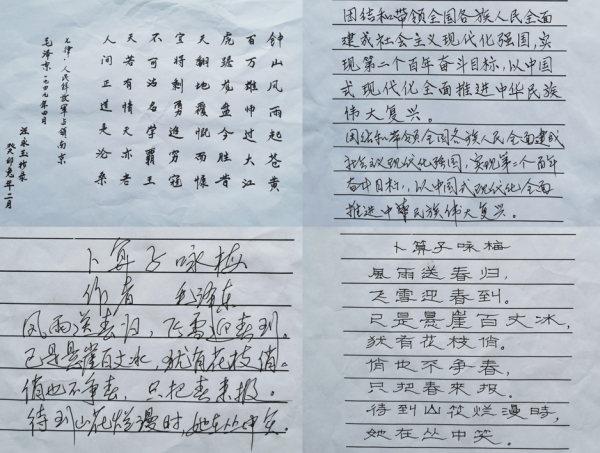 钟山风雨起苍黄
百万雄师过大江
虎踞龙盘今胜昔
天翻地覆慨而慷
宜将剩勇追穷寇
不可沽名学霸王
天若有情天亦老
人间正道是沧桑
七律·人民解放军占领南京
毛泽东一九四九年四月
汪永玉抄录
癸卯兔年二月
团结和带领全国各族人民全面
建成社会主义现代化强国,实
现第二个百年奋斗目标,以中国
式现代化全面推进中华民族
伟大复兴。
团结和带领全国各族人民全面建成
社会主义现代化强国,实现第二个百年
奋斗目标,以中国式现代化全面
推进中华民族伟大复兴。
卜算子咏梅
作者 毛泽东
风雨送春归,飞雪迎春到。
已是悬崖百丈冰,犹有花枝俏。
俏也不争春,只把春来报。
待到山花烂漫时,她在丛中笑。
卜算子咏梅
風雨送春归,
飞雪迎春到。
已是悬崖百丈冰,
犹有花枝俏。
俏也不争春,
只把春來报。
待到山花烂漫時,
她在丛中笑。